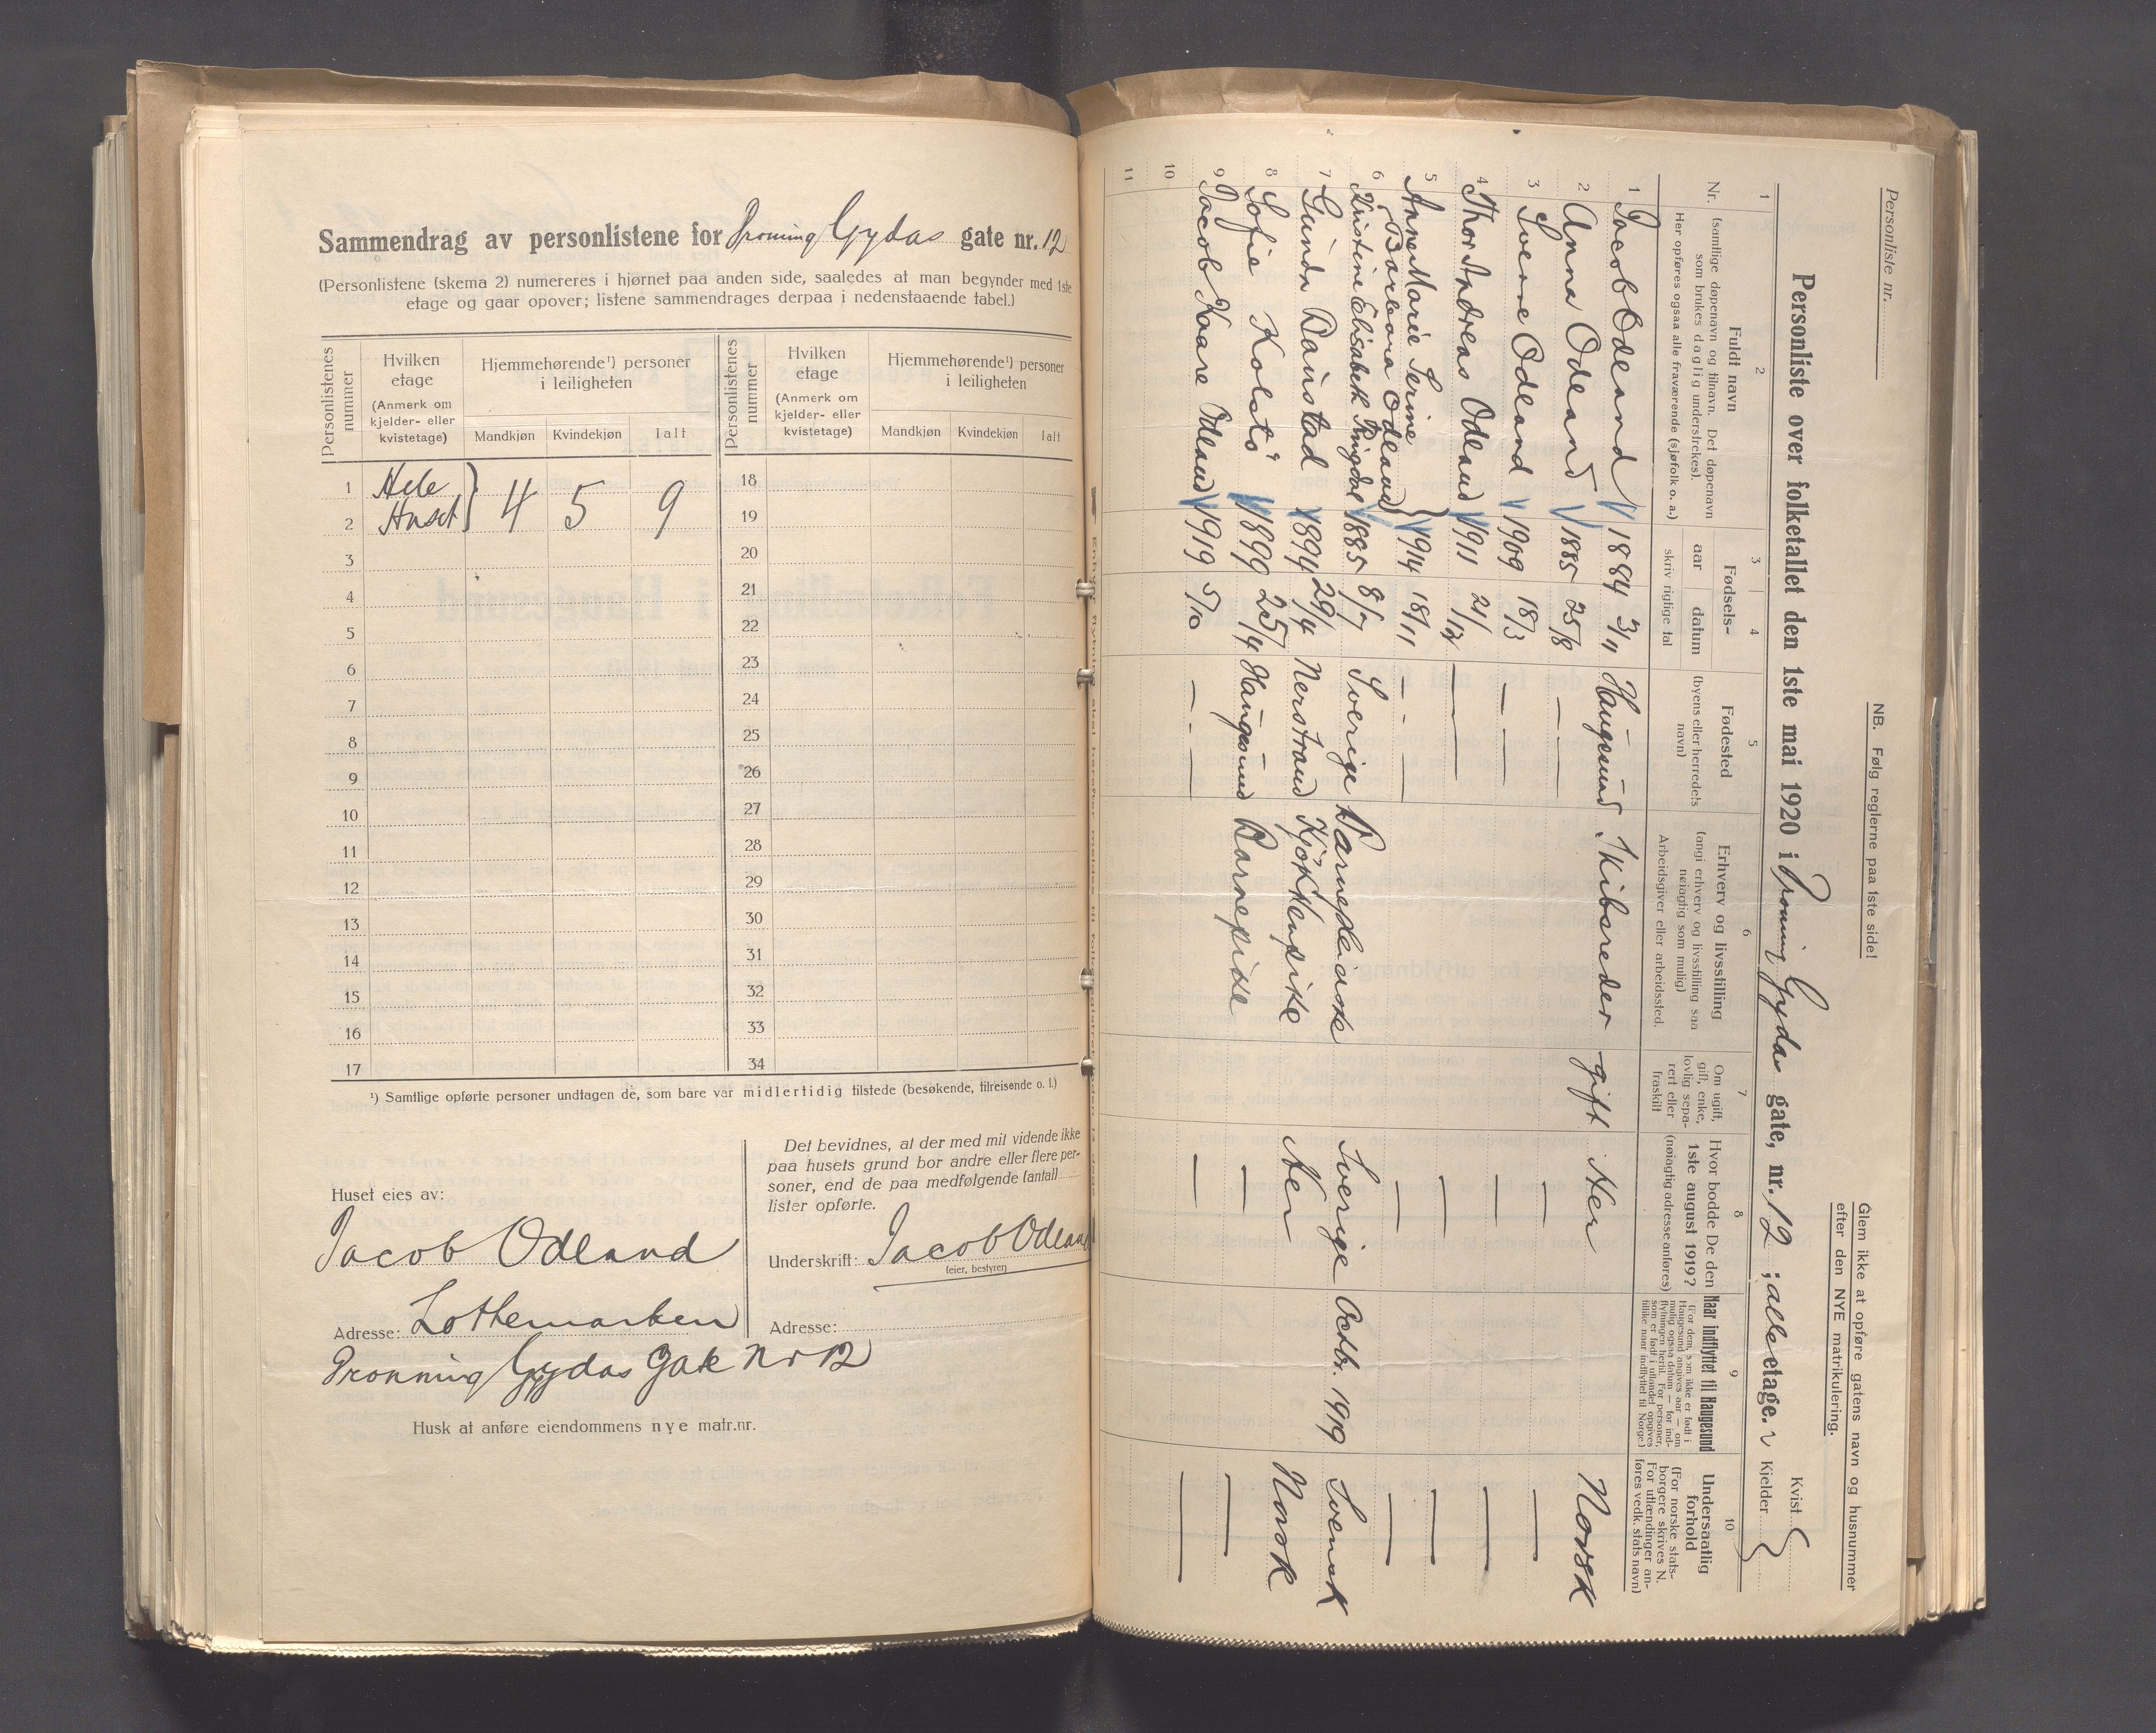 Sammendrag av personlistene for Dronning Gydas gate nr. 12
(Personlistene (skema 2) numereres i hjørnet paa anden side, saaledes at man begynder med 1ste
etage og gaar opover; listene sammendrages derpaa i nedenstaaende tabel.)
Personlistenes nummer
Hvilken etage (Anmerk om kjelder- eller kvistetage)
Hjemmehørende¹) personer i leiligheten
Mandkjøn Kvindekjøn Ialt
Personlistenes nummer
Hvilken etage (Anmerk om kjelder- eller kvistetage)
Hjemmehørende¹) personer i leiligheten
Mandkjøn Kvindekjøn Ialt
1 Hele 18
2 Huset } 4 5 9 19
3 20
4 21
5 22
6 23
7 24
8 25
9 26
10 27
11 28
12 29
13 30
14 31
15 32
16 33
17 34
¹) Samtlige opførte personer undtagen de, som bare var midlertidig tilstede (besøkende, tilreisende o. l.)
Huset eies av:
Jacob Odland
Adresse: Lothemarken
Dronning Gydas Gate Nr 12
Det bevidnes, at der med mit vidende ikke
paa husets grund bor andre eller flere per-
soner, end de paa medfølgende (antal)
lister opførte.
Underskrift: Jacob Odland
(eier, bestyrer)
Adresse:
Husk at anføre eiendommens nye matr.nr.
Personliste nr.
NB. Følg reglerne paa 1ste side!
Glem ikke at opføre gatens navn og husnummer
efter den NYE matrikulering.
Personliste over folketallet den 1ste mai 1920 i Dronning Gydas gate, nr. 12 ; alle etage.
Kvist
Kjelder
1 2 3 4 5 6 7 8 9 10
Nr.
Fuldt navn
(samtlige døpenavn og tilnavn. Det døpenavn
som brukes daglig understrekes).
Her opføres ogsaa alle fraværende (sjøfolk o. a.)
Fødsels-
aar datum
skriv riglige tal
Fødested
(byens eller herredets
navn)
Erhverv og livsstilling
(angi erhverv og livsstilling saa
nøiagtig som mulig)
Arbeidsgiver eller arbeidssted.
Om ugift,
gift, enke,
lovlig sepa-
rert eller
fraskilt
Hvor bodde De den
1ste august 1919?
(nøiagtig adresse anføres)
Naar indflyttet til Haugesund
(For dem, som ikke er født i
Haugesund angives aar — om
mulig ogsaa datum — for ind-
flytningen hertil. For personer,
som er født i utlandet opgives
tillike naar indflyttet til Norge.)
Undersaatlig
forhold
(For norske stats-
borgere skrives N.
For utlændinger an-
føres vedk. stats navn)
1 Jacob Odland 1884 3/11 Haugesund Skibsreder gift Her Norsk
2 Anna Odland 1885 25/8 — — — —
3 Sverre Odland 1909 18/3 — — — —
4 Thor Andreas Odland 1911 21/12 — — —
5 Anne Marie Serine
Barbara Odland } 1914 18/11 — — — —
6 Kristine Elisabeth Ringdal 1885 8/7 Sverige Barnepleierske Sverige Octbr. 1919 Svensk
7 Gunda Baustad 1894 29/4 Nerstrand Kjøkkenpike Her Norsk
8 Sofie Kolstø 1899 25/4 Haugesund Barnepike — —
9 Jacob Kaare Odland 1919 5/10 — — — —
10
11